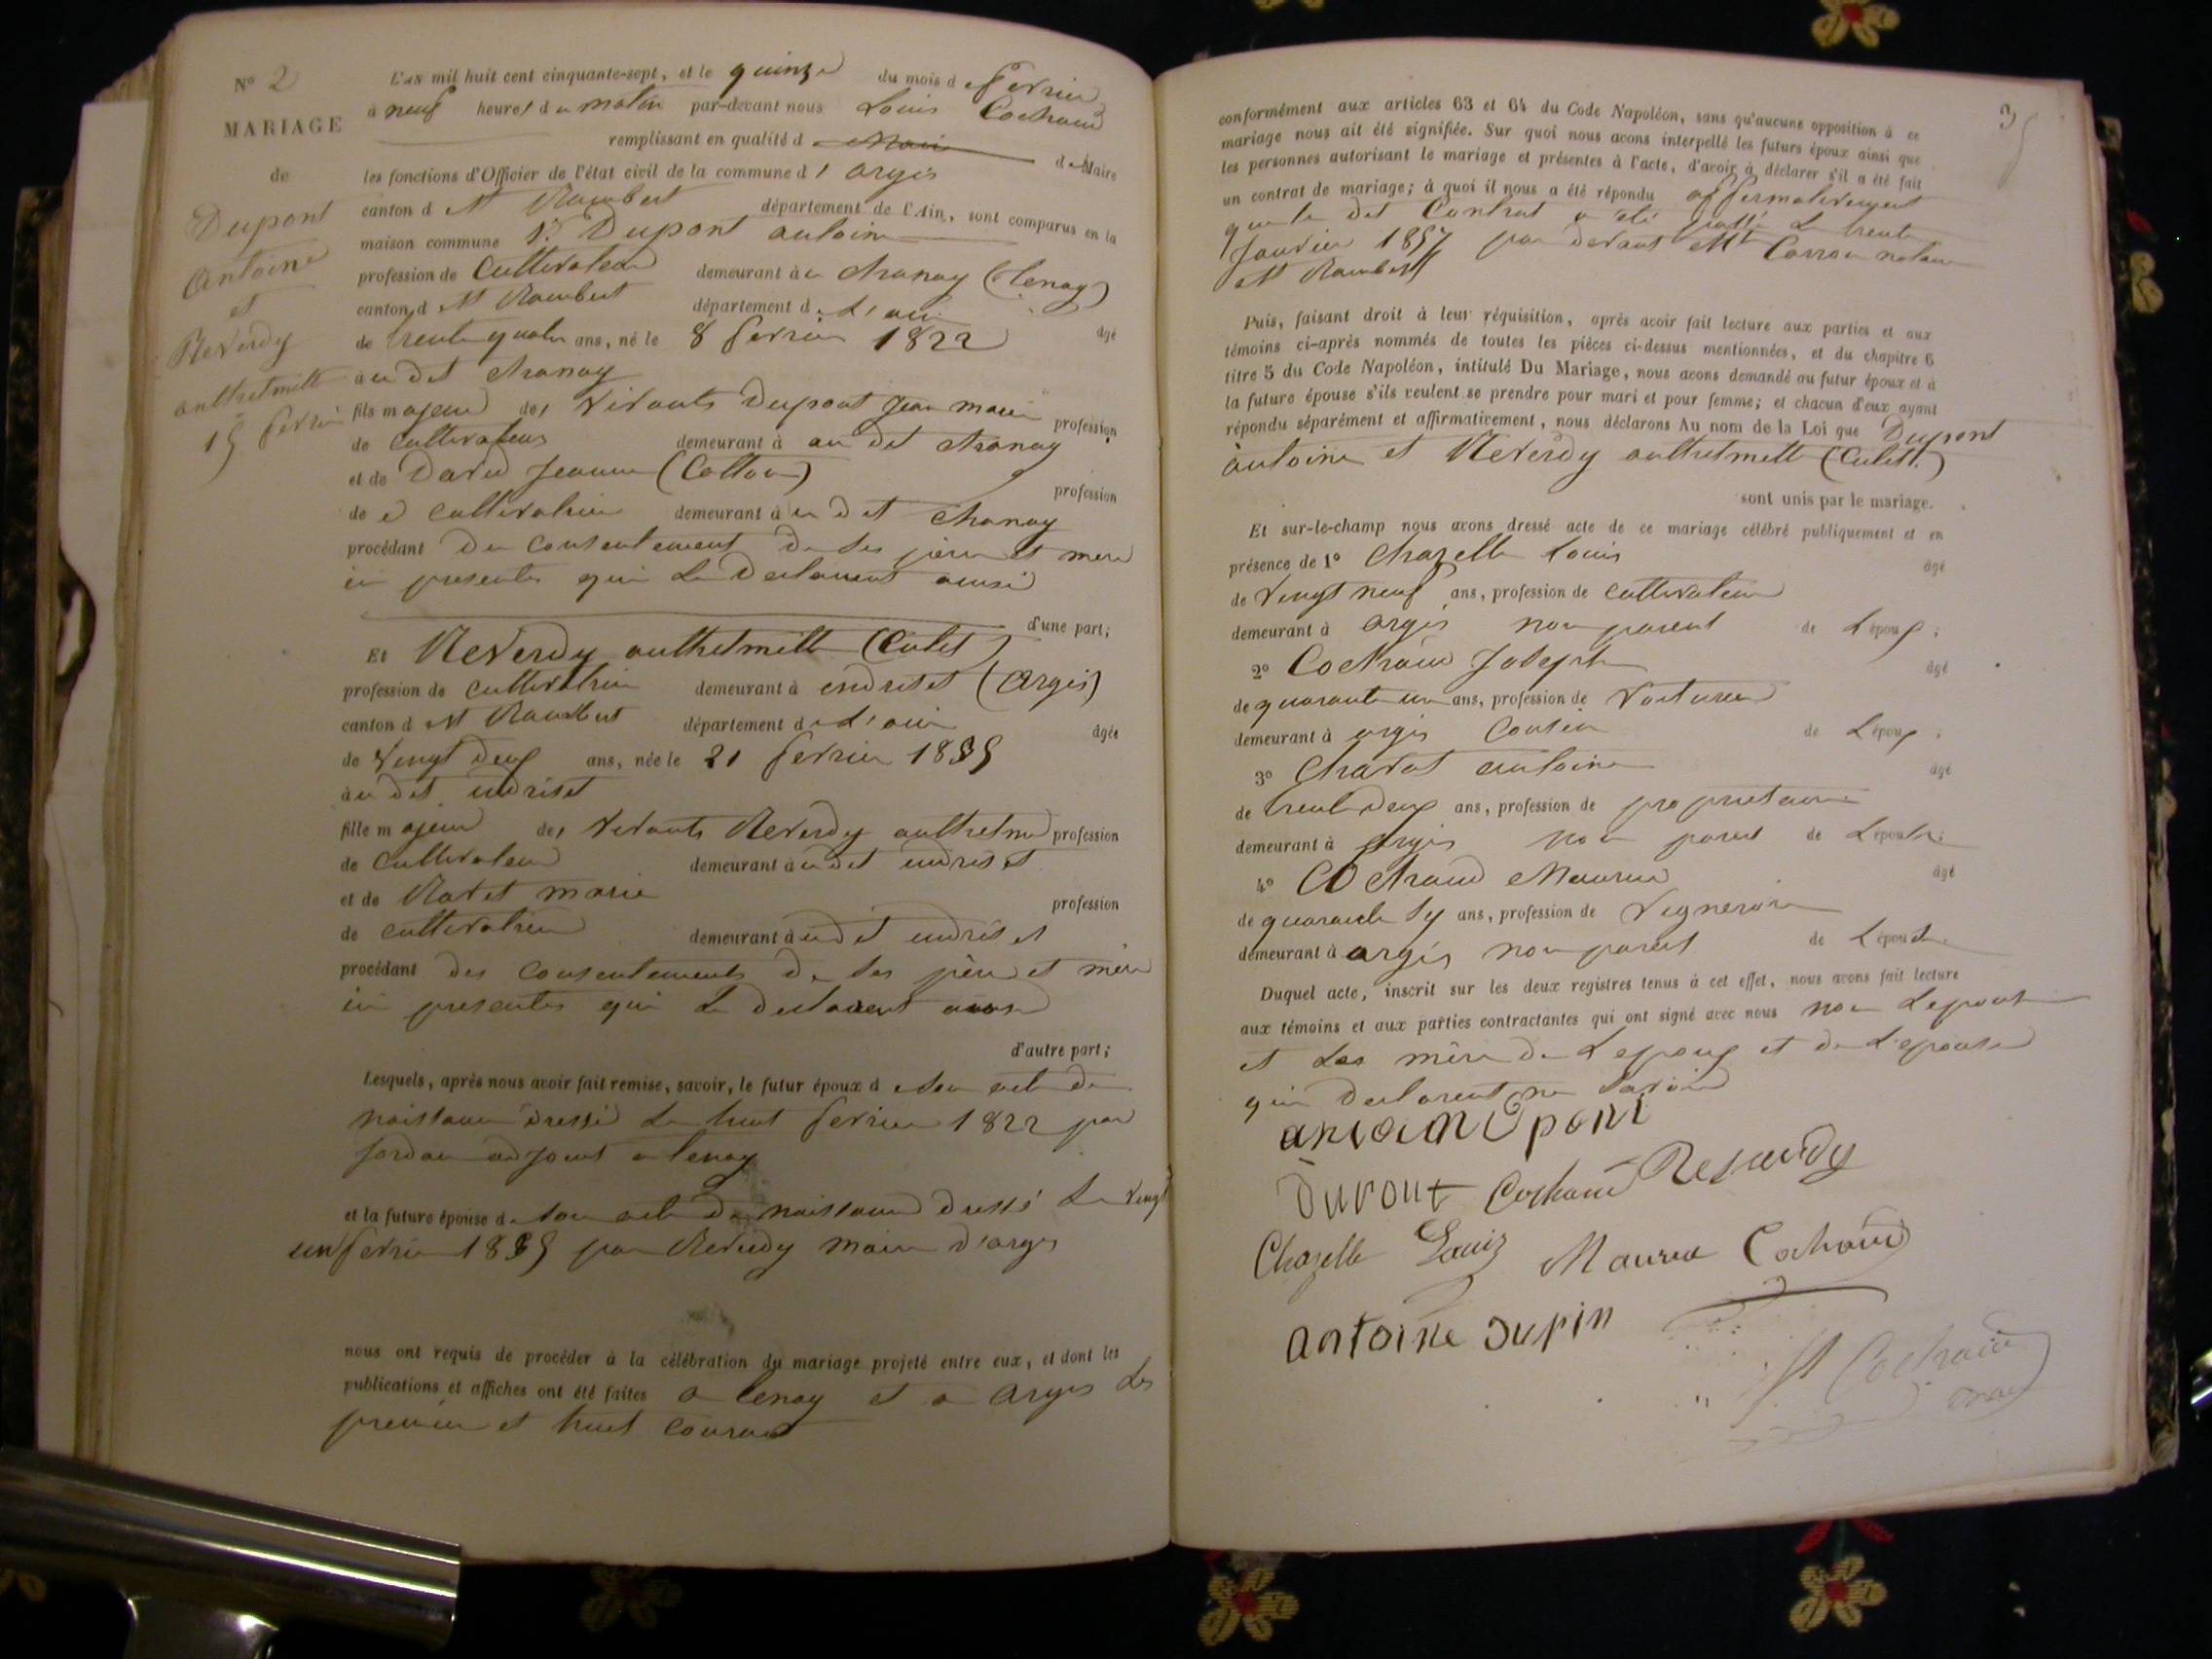 N° 2
MARIAGE
de
Dupont
Antoine
et
Reverdy
anthelmette
15 fevrier
L'AN mil huit cent cinquante-sept, et le quinze du mois d fevrier
à neuf heures du matin par-devant nous Louis Cochaud
remplissant en qualité d Maire
de Maire
les fonctions d'Officier de l'état civil de la commune d'argis
canton d St Rambert département de l'Ain, sont comparus en la
maison commune 1° Dupont antoine
profession de Cultivateur demeurant à chanay (tenay)
canton d St Rambert département de l'ain
âgé
de trente quatre ans, né le 8 fevrier 1822
au dit chanay
fils majeur des vivants Dupont Jean marie profession
de cultivateur demeurant à au dit chanay
et de David Jeanne
profession
de cultivatrice demeurant à u dit chanay
procédant du consentement de ses père et mere
ici presents qui le Declarent ainsi
d'une part;
Et Reverdy anthelmette (Culet)
profession de cultivatrice demeurant à indriset (argis)
canton d St Rambert département de l'ain
âgée
de vingt deux ans, née le 21 fevrier 1835
au dit indriset
fille majeur des vivants Reverdy anthelme profession
de cultivateur demeurant à u dit indriset
et de Ravet marie
profession
de cultivatrice demeurant à u dit indriset
procédant des consentements de ses père et mère
ici presents qui le declarent ainsi
d'autre part;
Lesquels, après nous avoir fait remise, savoir, le futur époux de son acte de
naissance dressé le huit fevrier 1822 par
adjoint a tenay
et la future épouse de son acte de naissance dressé le vingt
un fevrier 1835 par Reverdy maire d'argis
nous ont requis de procéder à la célébration du mariage projeté entre eux, et dont les
publications et affiches ont été faites a tenay et a argis les
premier et huit courant
conformément aux articles 63 et 64 du Code Napoléon, sans qu'aucune opposition à ce
mariage nous ait été signifiée. Sur quoi nous avons interpellé les futurs époux ainsi que
les personnes autorisant le mariage et présentes à l'acte, d'avoir à déclarer s'il a été fait
un contrat de mariage; à quoi il nous a été répondu affirmativement
que le dit Contrat a été passé le trente
Janvier 1857 par devant Me notaire
St Rambert
Puis, faisant droit à leur réquisition, après avoir fait lecture aux parties et aux
témoins ci-après nommés de toutes les pièces ci-dessus mentionnées, et du chapitre 6
titre 5 du Code Napoléon, intitulé Du Mariage, nous avons demandé au futur époux et à
la future épouse s'ils veulent se prendre pour mari et pour femme; et chacun d'eux ayant
répondu séparément et affirmativement, nous déclarons Au nom de la Loi que Dupont
antoine et Reverdy anthelmette (Culet)
sont unis par le mariage.
Et sur-le-champ nous avons dressé acte de ce mariage célébré publiquement et en
présence de 1° Chazelle Louis
âgé
de vingt neuf ans, profession de cultivateur
demeurant à argis non parent de L'époux;
2° Cochaud Joseph
âgé
de quarante un ans, profession de voiturier
demeurant à argis cousin de L'époux;
3° Chavat antoine
âgé
de trente deux ans, profession de proprietaire
demeurant à argis non parent de L'épouse;
4° Cochaud Maurice
âgé
de quarante six ans, profession de Vigneron
demeurant à argis non parent de L'épouse.
Duquel acte, inscrit sur les deux registres tenus à cet effet, nous avons fait lecture
aux témoins et aux parties contractantes qui ont signé avec nous non Lepouse
et les mère de Lepoux et de L'epouse
qui declarent ne savoir
Dupont Cochaud Reverdy
Chazelle Louis Maurice Cochaud
antoine
Cochaud
maire